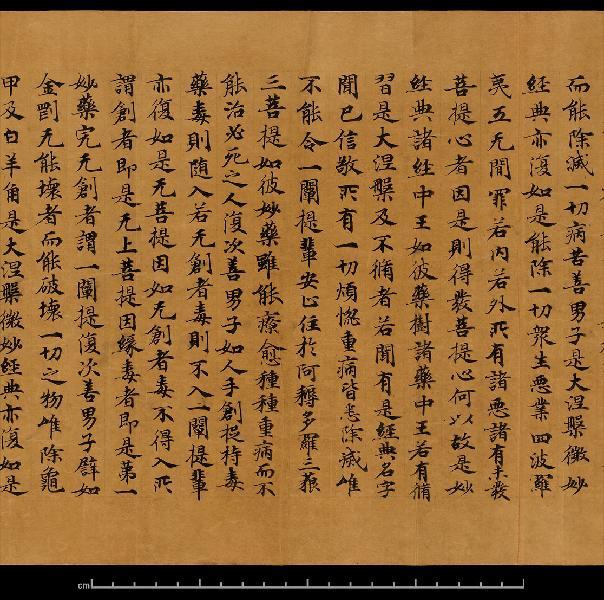 而能除滅一切病苦善男子是大涅槃微妙
經典亦復如是能除一切衆生惡業四波羅
夷五无間罪若内若外所有諸惡諸有未發
菩提心者因是則得發菩提心何以故是妙
經典諸經中王如彼藥樹諸藥中王若有脩
習是大涅槃及不脩者若聞有是經典名字
聞已信敬所有一切煩惚重病皆悉除滅唯
不能令一闡提輩安止住於阿耨多羅三藐
三菩提如彼妙藥雖能療愈種種重病而不
能治必死之人復次善男子如人手創捉持毒
藥毒則随入若无創者毒則不入一闡提輩
亦復如是无菩提因如无創者毒不得入所
謂創者即是无上菩提因緣毒者即是第一
妙藥完无創者謂一闡提復次善男子辟如
金罰无能壞者而能破壞一切之物唯除龜
甲及白羊角是大涅槃微妙經典亦復如是
cm